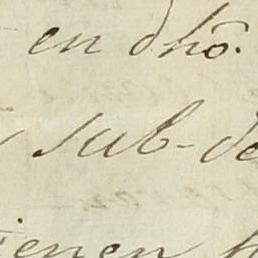 en dhõ.
sub-de
ienen